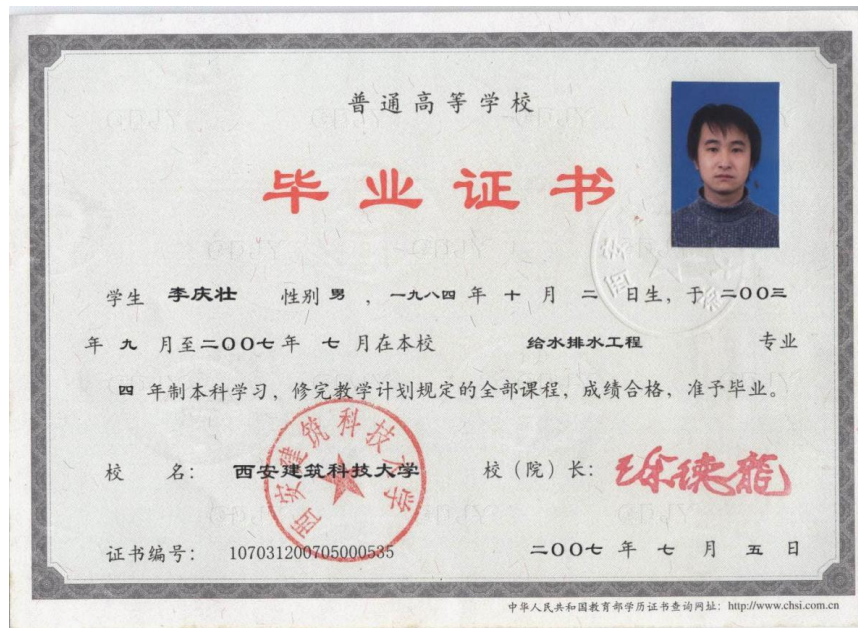 普通高等学校
毕业证书
学生 李庆壮 性别 男 , 一九八四 年 十 月 二 日生, 于 二00三
年 九 月至 二00七 年 七 月在本校 给水排水工程 专业
四 年制本科学习, 修完教学计划规定的全部课程, 成绩合格, 准予毕业。
西安建筑科技大学
校 名: 西安建筑科技大学 校(院)长: 徐德龍
证书编号: 107031200705000535 二00七 年 七 月 五 日
中华人民共和国教育部学历证书查询网址: http://www.chsi.com.cn